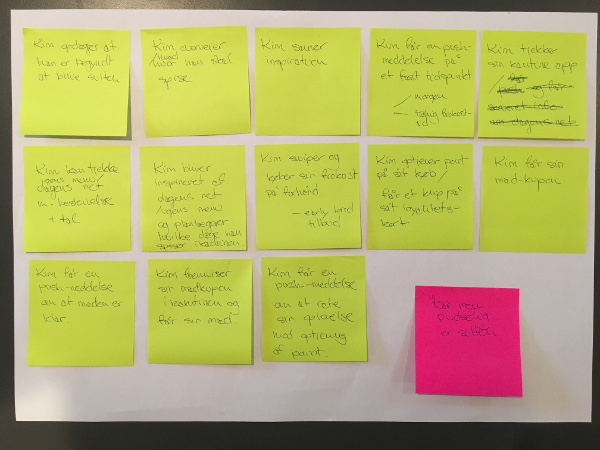 Kim opdager at
han er begyndt
at blive sulten
Kim overvejer
hvad
hvor han skal
spise
Kim savner
inspiration
Kim får en push-
meddelelse på
et fast tidspunkt
morgen
tidlig frokost-
tid
Kim tjekker
sin kantine app
Kim kan tjekke
ugens menu/
dagens ret
m. beskrivelse
+ tal
Kim bliver
inspireret af
dagens ret
/ugens menu
og planlægger
hvilke dage han
spiser i kantinen.
Kim swiper og
køber sin frokost
på forhånd
- early bird
tilbud
Kim optjener point
på sit køb/
får et klip på
sit loyalitets-
kort
Kim får sin
mad-kupon
Kim får en
push-meddelelse
om at maden er
klar.
Kim fremviser
sin madkupon
i kantinen og
får sin mad.
Kim får en
push-meddelelse
om at rate
sin oplevelse
mod optjening
af point.
er sulten